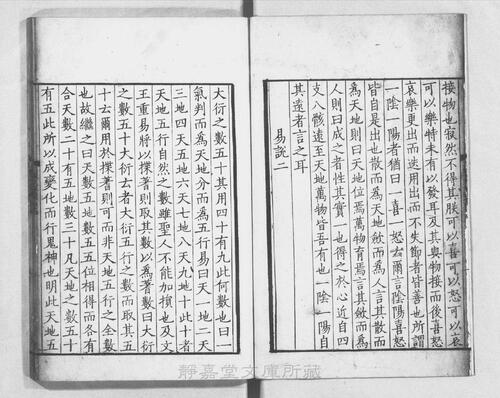 接物也寂然不得其朕可以喜可以怒可以哀
可以樂特未有以發耳及其與物接而後喜怒
哀樂更出而迭用出而不失節者皆善也所謂
一陰一陽者猶曰一喜一怒云爾言陰陽喜怒
皆自是出也散而為天地斂而為人言其散而
為天地則曰天地位焉萬物育焉言其斂而為
人則曰成之者性其實一也得之於心近自四
支八骸遠至天地萬物皆吾有也一陰一陽自
其遠者言之耳
易說二
大衍之數五十其用四十有九此何數也曰一
氣判而為天地分而為五行易曰天一地二天
三地四天五地六天七地八天九地十此十者
天地五行自然之數雖聖人不能加損也及文
王重易將以揲蓍則取其數以為蓍數曰大衍
之數五十大衍云者大衍五行之數而取其五
十云爾用於揲蓍則可而非天地五行之全數
也故繼之曰天數五地數五五位相得而各有
合天數二十有五地數三十凡天地之數五十
有五此所以成變化而行鬼神也明此天地五
靜嘉堂文庫所藏